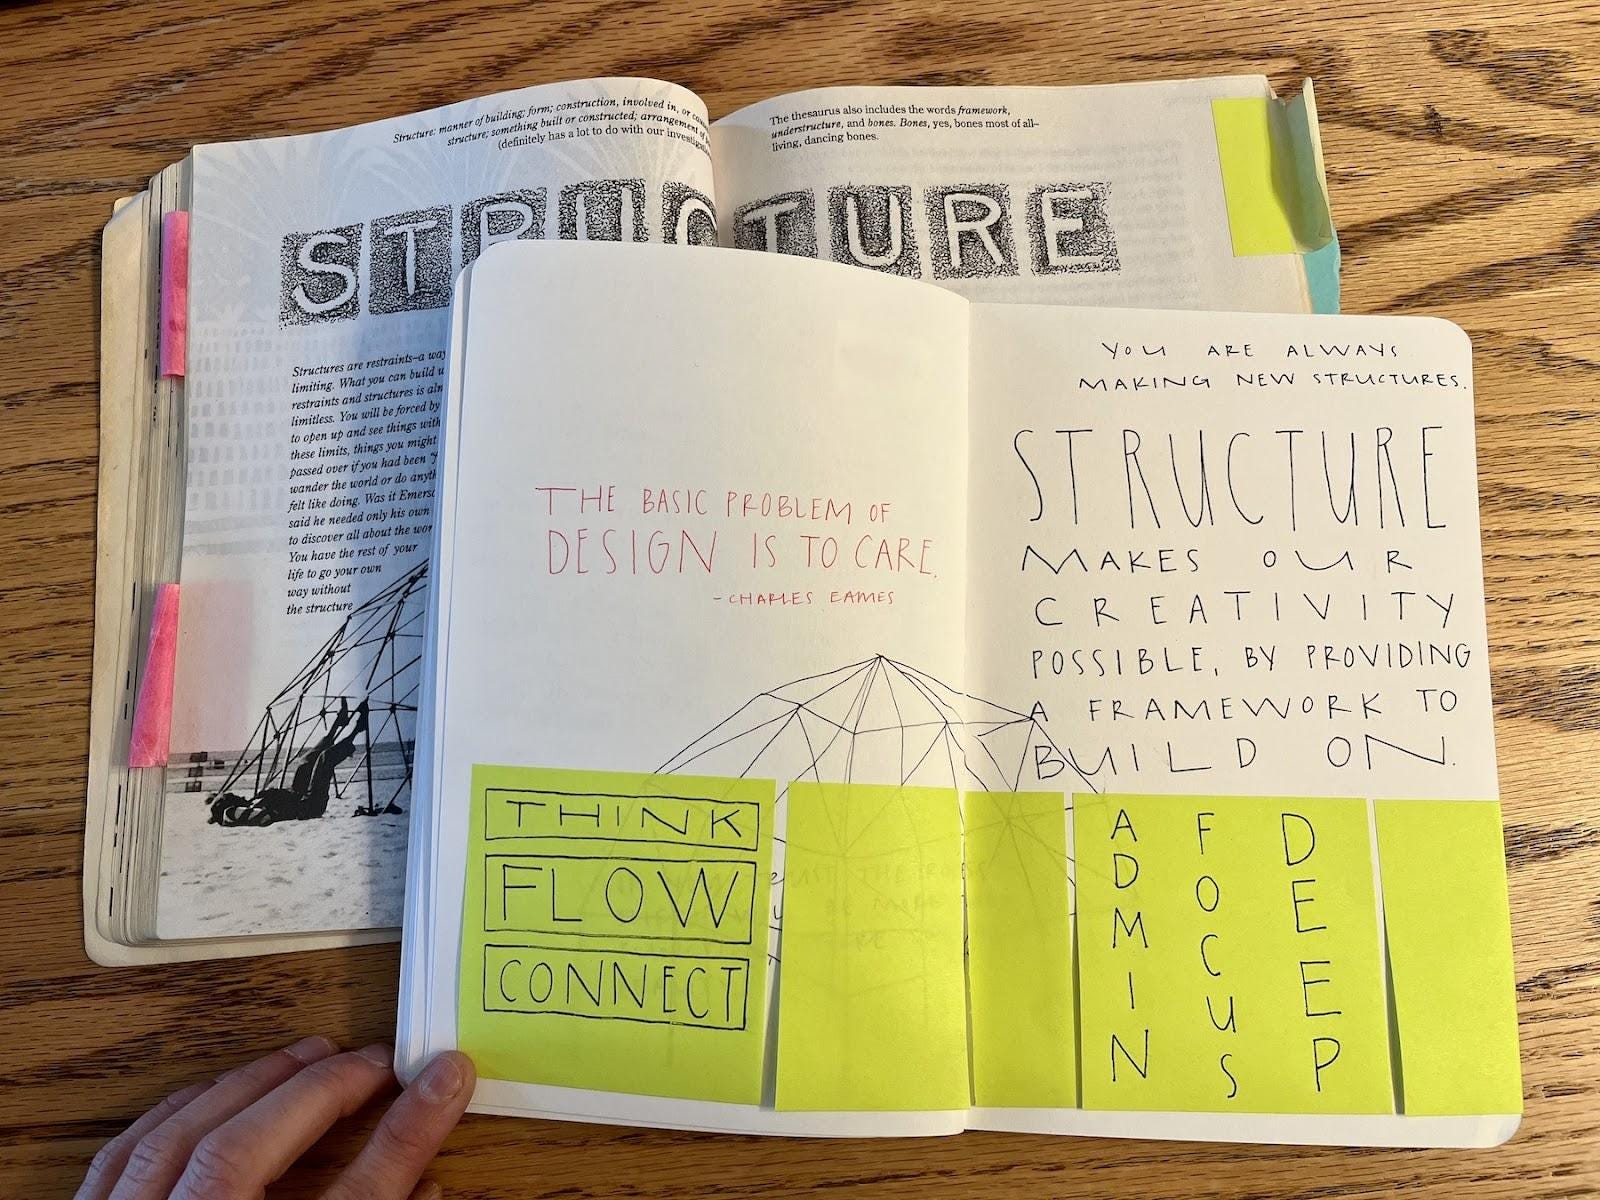 Structure: manner of building; form; construction, involved in, or
structure; something built or constructed; arrangement of
(definitely has a lot to do with our
The thesaurus also includes the words framework,
understructure, and bones. Bones, yes, bones most of all–
living, dancing bones.
STRUCTURE
Structures are restraints–a way
limiting. What you can build
restraints and structures is
limitless. You will be forced by
to open up and see things with
these limits, things you might
passed over if you had been
wander the world or do
felt like doing. Was it
said he needed only his own
to discover all about the
You have the rest of your
life to go your own
way without
the structure
THE BASIC PROBLEM OF
DESIGN IS TO CARE.
- CHARLES EAMES
THINK
FLOW
CONNECT
YOU ARE ALWAYS
MAKING NEW STRUCTURES.
STRUCTURE
MAKES OUR
CREATIVITY
POSSIBLE, BY PROVIDING
A FRAMEWORK TO
BUILD ON.
ADMIN
FOCUS
DEEP